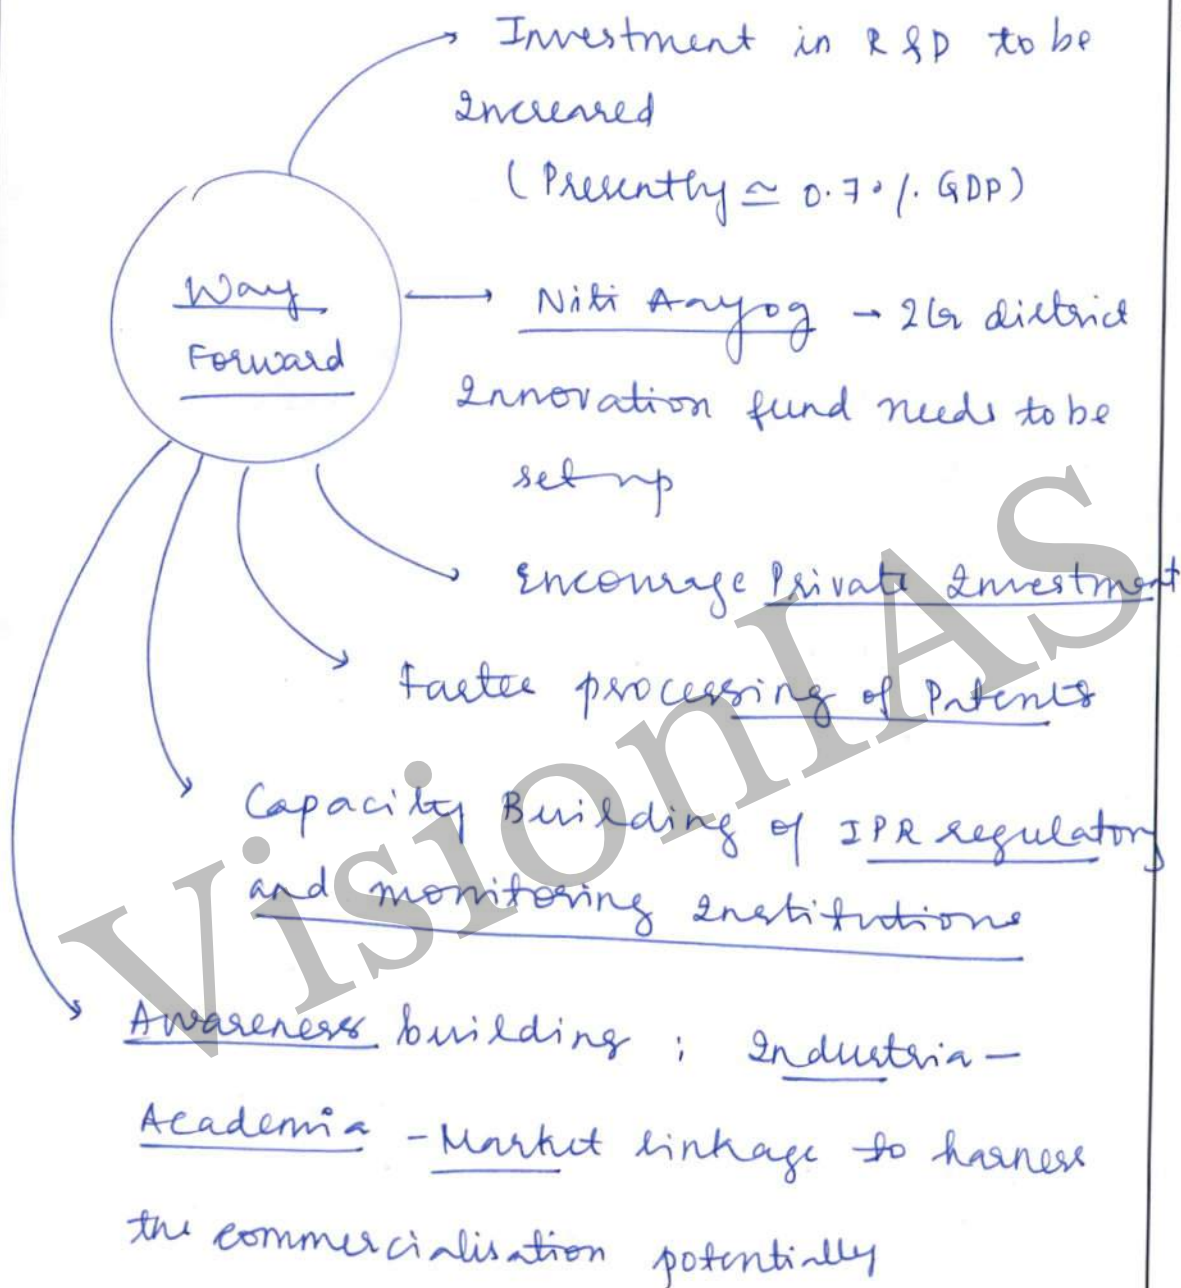 Investment in R&D to be
Increased
(Presently ≃ 0.7% GDP)
Way
Forward
Niti Aayog - district
Innovation fund needs to be
set up
Encourage Private Investment
Faster processing of Patents
Capacity Building of IPR regulatory
and monitoring Institutions
Awareness building ; Industria-
Academia - Market linkage to harness
the commercialisation potentially
VisionIAS